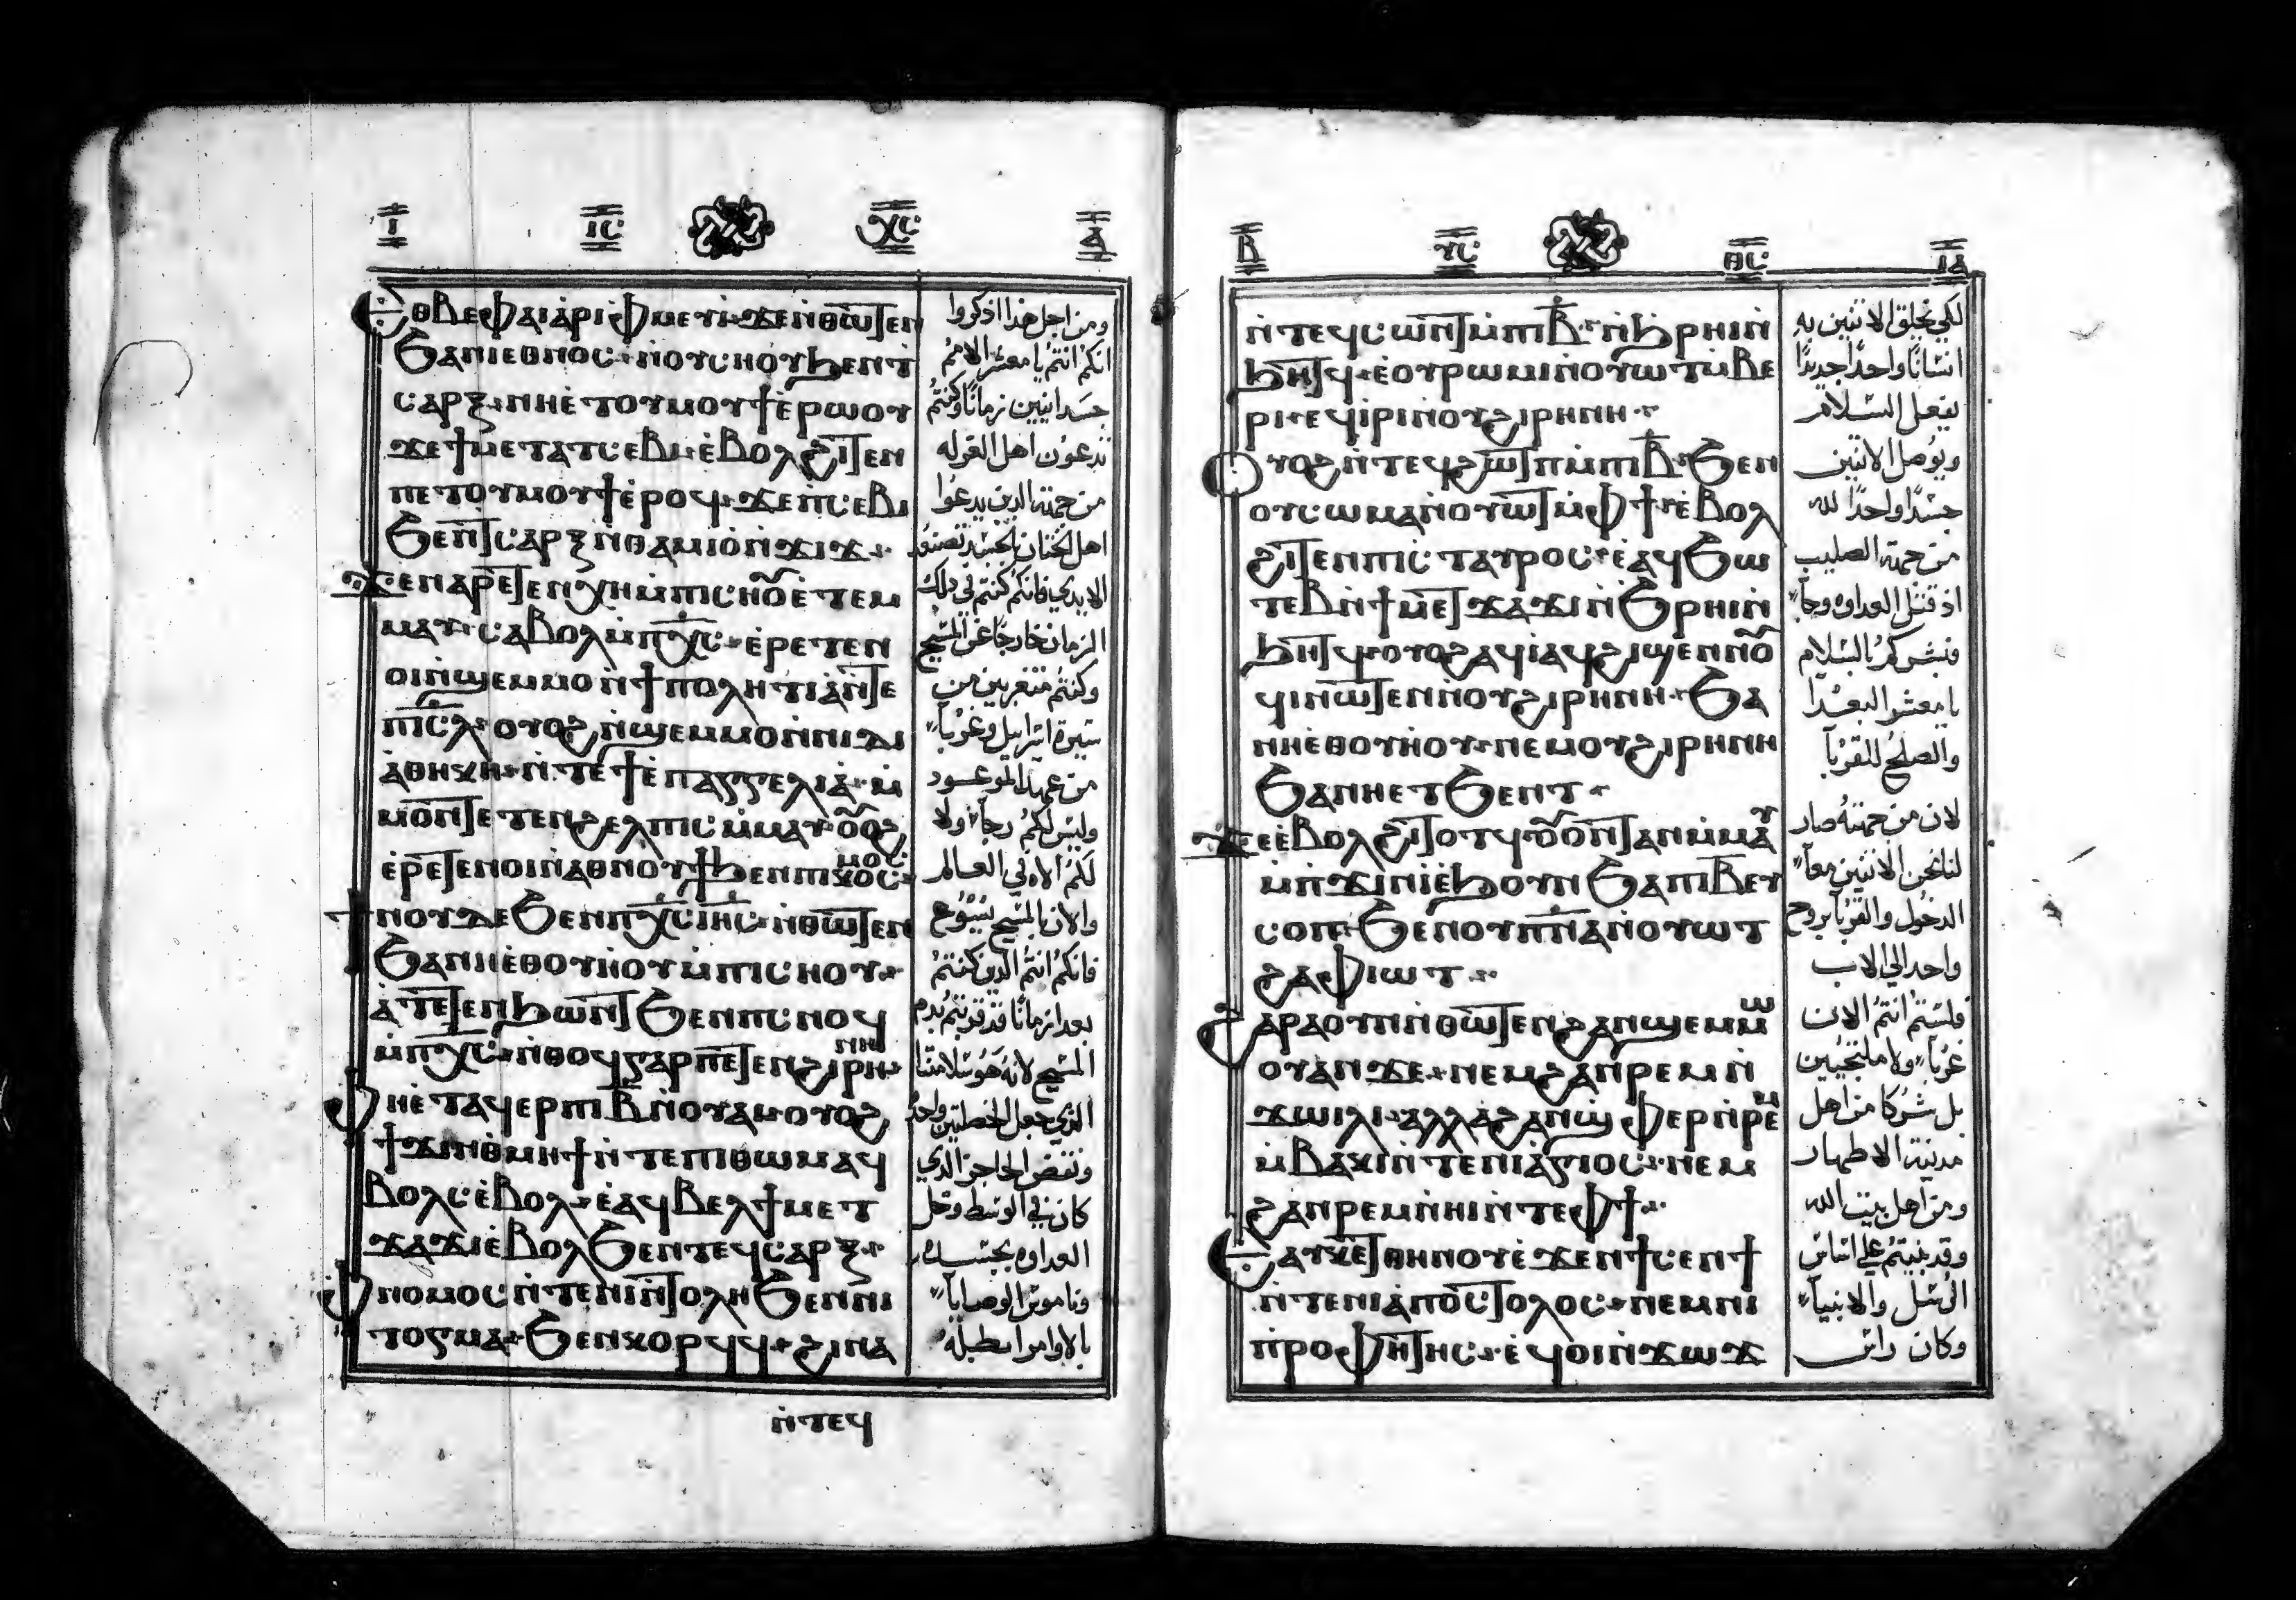 Ⲓ ⲒⲤ ⲬⲤ Ⲁ
Ⲉⲑⲃⲉⲫⲁⲓⲁ̀ⲣⲓⲫⲙⲉⲩⲓ ϫⲉⲛ̀ⲑⲱⲧⲉⲛ
ϧⲁⲛⲓⲉⲑⲛⲟⲥ ⲛ̀ⲟⲩⲥⲏⲟⲩϧⲉⲛⲧ
ⲥⲁⲣⲝ ⲛⲏⲉ̀ⲧⲟⲩⲙⲟⲩϯⲉ̀ⲣⲱⲟⲩ
ϫⲉϯⲙⲉⲧⲁⲧⲥⲉⲃⲓ ⲉ̀ⲃⲟⲗϩⲓⲧⲉⲛ
ⲡⲉⲧⲟⲩⲙⲟⲩϯⲉ̀ⲣⲟϥ ϫⲉⲡⲥⲉⲃⲓ
ϧⲉⲛⲧⲥⲁⲣⲝ ⲛ̀ⲑⲁⲙⲓⲟ̀ⲛ̀ϫⲓϫ
ϫⲉⲛⲁⲣⲉⲧⲉⲛⲭⲏⲙ̀ⲡⲓⲥⲏⲟⲩⲉ̀ⲧⲉⲙ
ⲙⲁⲩ ⲥⲁⲃⲟⲗⲙ̀ⲡⲭⲥ ⲉ̀ⲣⲉⲧⲉⲛ
ⲟⲓⲛ̀ϣⲉⲙⲙⲟⲛ̀ϯⲡⲟⲗⲏⲧⲓⲁ̀ⲛ̀ⲧⲉ
ⲡⲓⲥⲗ ⲟⲩⲟϩⲛ̀ϣⲉⲙⲙⲟⲛ̀ⲛⲓⲇⲓ
ⲁ̀ⲑⲏⲕⲏ ⲛ̀ⲧⲉϯⲉ̀ⲡⲁⲅⲅⲉⲗⲓⲁ̀ ⲙ̀
ⲙⲟⲛⲧⲉⲧⲉⲛϩⲉⲗⲡⲓⲥⲙ̀ⲙⲁⲩ ⲟⲩⲟϩ
ⲉ̀ⲣⲉⲧⲉⲛⲟⲓⲛ̀ⲁⲑⲛⲟⲩϯϧⲉⲛⲡⲓⲕⲟⲥⲙⲟⲥ
ϯⲛⲟⲩⲇⲉϧⲉⲛⲡⲭⲥⲓⲏⲥ ⲛ̀ⲑⲱⲧⲉⲛ
ϧⲁⲛⲏⲉ̀ⲑⲟⲩⲏⲟⲩⲙ̀ⲡⲓⲥⲏⲟⲩ
ⲁ̀ⲧⲉⲧⲉⲛϧⲱⲛⲧϧⲉⲛⲡⲥⲛⲟϥ
ⲙ̀ⲡⲭⲥ ⲛ̀ⲑⲟϥⲅⲁⲣⲡⲉⲧⲉⲛϩⲓⲣⲏⲛⲏ
Ⲫⲏⲉ̀ⲧⲁϥⲉⲣⲡⲓⲃ̅ⲛ̀ⲟⲩⲁⲓ ⲟⲩⲟϩ
ϯϫⲓⲛⲑⲙⲏϯⲛ̀ⲧⲉⲡⲓⲑⲱⲙⲁϥ
ⲃⲟⲗⲥⲉ̀ⲃⲟⲗ ⲉ̀ⲁϥⲃⲉⲗϯⲙⲉⲧ
ϫⲁϫⲓⲉ̀ⲃⲟⲗϧⲉⲛⲧⲉϥⲥⲁⲣⲝ
Ⲫⲛⲟⲙⲟⲥⲛ̀ⲧⲉⲛⲓⲛ̀ⲧⲟⲗⲏϧⲉⲛⲛⲓ
ⲧⲟⲅⲙⲁ ϧⲉⲛⲕⲟⲣϥϥ ϩⲓⲛⲁ
ⲛ̀ⲧⲉϥ
ومن اجل هذا اذكروا
انكم انتم يا معشر الامم
جسدانيين زمانًا وكنتم
تدعون اهل القوله
من جهة الذين يدعوا
اهل الختان بالجسد تصنع
الايدي فانكم كنتم في ذلك
الزمان خارجًا عن المسيح
وكنتم متغربين من
سيرة اسراييل وغربآ
من عهد الموعود
وليس لكم رجآ ولا
لكم الاه في العالم
والان بالمسيح يسوع
فانكم انتم الذين كنتم
بعدا زمانًا قد قربتم بدم
المسيح لانه هو سلامتنا
الذي جعل الخصلتين واحد
ونقض الحاجز الذي
كان في الوسط وحل
العداوه بجسده
وناموس الوصايآ
بالاوامر ابطله
Ⲃ ⲨⲤ ⲐⲤ ⲒⲀ
ⲛ̀ⲧⲉϥⲥⲱⲛⲧⲙ̀ⲡⲓⲃ̅ ⲛ̀ϧⲣⲏⲓⲛ̀
ϧⲏⲧϥ ⲉ̀ⲟⲩⲣⲱⲙⲓⲛ̀ⲟⲩⲱⲧⲙ̀ⲃⲉ
ⲣⲓ ⲉϥⲓ̀ⲣⲓⲛ̀ⲟⲩϩⲓⲣⲏⲛⲏ
Ⲟⲩⲟϩⲛ̀ⲧⲉϥϩⲱⲧⲡⲙ̀ⲡⲓⲃ̅ ϧⲉⲛ
ⲟⲩⲥⲱⲙⲁⲛ̀ⲟⲩⲱⲧⲙ̀ⲫϯ ⲉ̀ⲃⲟⲗ
ϩⲓⲧⲉⲛⲡⲓⲥⲧⲁⲩⲣⲟⲥ ⲉ̀ⲁϥϧⲱ
ⲧⲉⲃⲛ̀ϯⲙⲉⲧϫⲁϫⲓⲛ̀ϧⲣⲏⲓⲛ̀
ϧⲏⲧϥ ⲟⲩⲟϩⲁϥⲓ̀ⲁϥϩⲓϣⲉⲛⲛⲟⲩ
ϥⲓⲛⲱⲧⲉⲛⲛ̀ⲟⲩϩⲓⲣⲏⲛⲏ ϧⲁ
ⲛⲏⲉ̀ⲑⲟⲩⲏⲟⲩ ⲛⲉⲙⲟⲩϩⲓⲣⲏⲛⲏ
ϧⲁⲛⲏⲉⲧϧⲉⲛⲧ
Ϫⲉⲉ̀ⲃⲟⲗϩⲓⲧⲟⲧϥ ⲟⲩⲟⲛⲧⲁⲛⲙ̀ⲙⲁⲩ
ⲙ̀ⲡϫⲓⲛⲓ̀ⲉ̀ϧⲟⲩⲛ ϧⲁⲡⲓⲃ̅ⲉⲩ
ⲥⲟⲡ ϧⲉⲛⲟⲩⲡⲛⲁ̀ⲛ̀ⲟⲩⲱⲧ
ϩⲁⲫⲓⲱⲧ
Ϩⲁⲣⲁⲟⲩⲛⲛ̀ⲑⲱⲧⲉⲛϩⲁⲛϣⲉⲙⲙⲱ
ⲟⲩⲁⲛϫⲉ ⲛⲉⲙϩⲁⲛⲣⲉⲙⲛ̀
ϫⲱⲓⲗⲓ ⲁⲗⲗⲁϩⲁⲛϣⲫⲉⲣⲛ̀ⲣⲉⲙ
ⲙ̀ⲃⲁⲕⲓⲛ̀ⲧⲉⲛⲓⲁ̀ⲅⲓⲟⲥ ⲛⲉⲙ
ϩⲁⲛⲣⲉⲙⲛ̀ⲏⲓⲛ̀ⲧⲉⲫϯ
Ⲉⲁⲩⲕⲉⲧⲑⲏⲛⲟⲩⲉ̀ϫⲉⲛϯⲥⲉⲛϯ
ⲛ̀ⲧⲉⲛⲓⲁ̀ⲡⲟⲥⲧⲟⲗⲟⲥ ⲛⲉⲙⲛⲓ
ⲡ̀ⲣⲟⲫⲏⲧⲏⲥ ⲉϥⲟⲓⲛ̀ϫⲱϫ
لكي يخلق الاثنين به
انسانًا واحدًا جديدًا
يفعل السلام
ويوصل الاثنين
جسدًا واحدًا لله
من جهة الصليب
اذ قتل العداوه وجآ
فبشركم بالسلام
يا معشر البعدا
والصلح للقربآ
لان من جهته صار
لنا نحن الاثنين معآ
الدخول والقربآ بروح
واحد الي الاب
فلستم انتم الان
غربآ ولا ملتجيين
بل شركا من اهل
مدينة الاطهار
ومن اهل بيت الله
وقد بنيتم علي اساس
الرسل والانبيآ
وكان راس